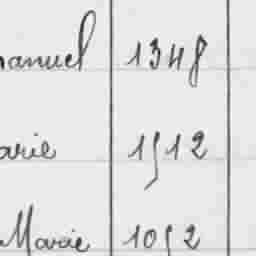 manuel 1348
arie 1512
Marie 1052